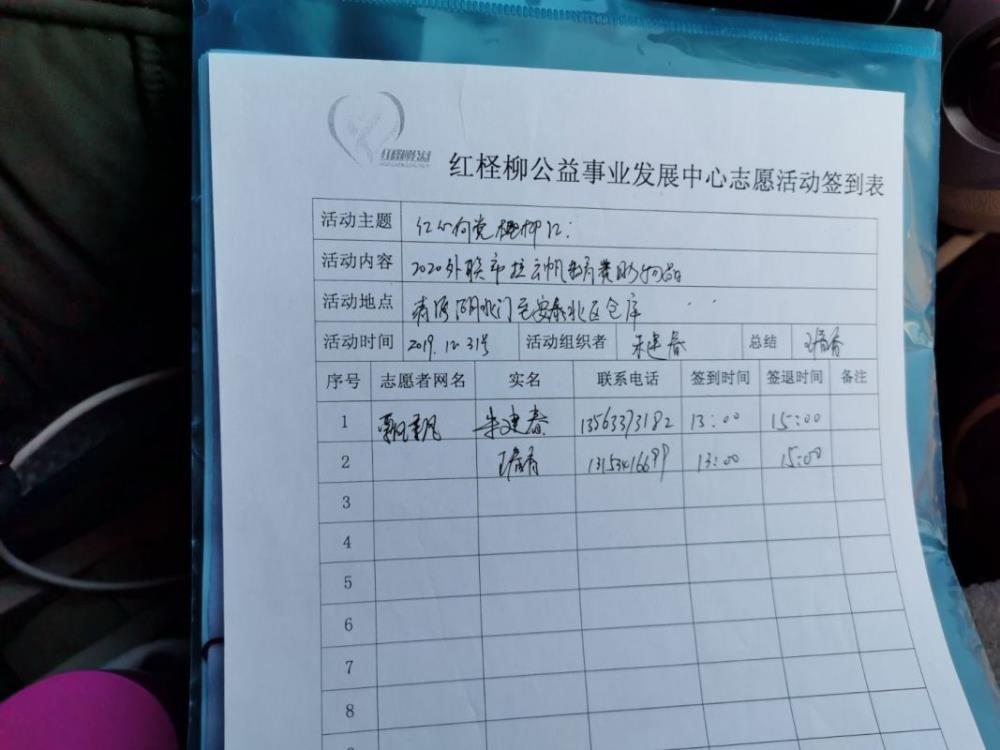 红柽柳公益
红柽柳公益事业发展中心志愿活动签到表
活动主题 红心向党 柳红:
活动内容 2020外联市
活动地点 清河湖北门至安泰北区仓库
活动时间 2019.12.31号 活动组织者 朱建春 总结
序号 志愿者网名 实名 联系电话 签到时间 签退时间 备注
1 飘飘 朱建春 13563393182 13:00 15:00
2 13153416699 13:00 15:00
3
4
5
6
7
8